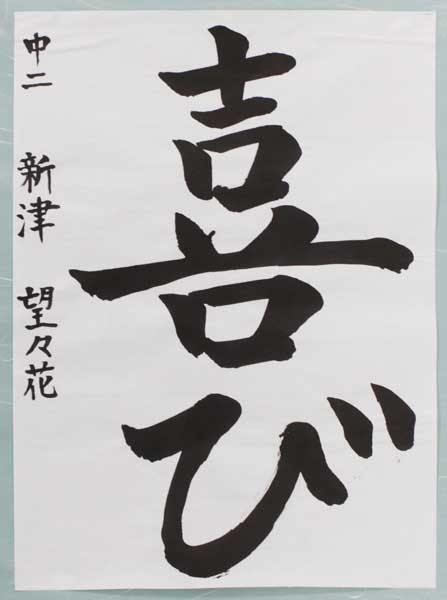 喜び
中二 新津 望々花